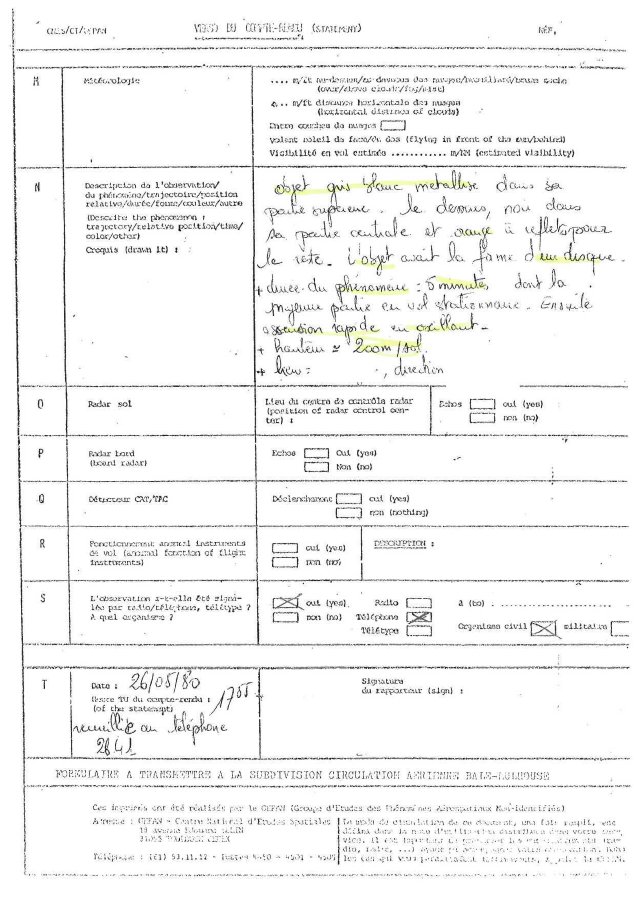 CNES/CT/GEPAN VERSO DU COMPTE-RENDU (STATEMENT) REF.
M Météorologie
.... m/ft au-dessus/au-dessous des nuages/brouillard/brume sèche
(over/above clouds/fog/mist)
m/ft distance horizontale des nuages
(horizontal distance of clouds)
Entre couches de nuages
volant soleil de face/du dos (flying in front of the sun/behind)
Visibilité en vol estimée ............ m/NM (estimated visibility)
N Description de l'observation/
du phénomène/trajectoire/position
relative/durée/forme/couleur/autre
(Describe the phenomenon :
trajectory/relative position/time/
color/other)
Croquis (drawn it) :
objet gris blanc métallisé dans sa
partie supérieure. le dessous, noir dans
sa partie centrale et orange à reflets pour
le reste. L'objet avait la forme d'un disque.
+ durée du phénomène : 5 minutes, dont la
majeure partie en vol stationnaire. Ensuite
ascension rapide en oscillant.
+ hauteur ≃ 200m/sol.
+ lieu : , direction
O Radar sol
Lieu du centre de contrôle radar
(position of radar control cen-
ter) :
Echos oui (yes)
non (no)
P Radar bord
(board radar)
Echos Oui (yes)
Non (no)
Q Détecteur CAT/TAC
Déclenchement oui (yes)
non (nothing)
R Fonctionnement anormal instruments
de vol (anormal fonction of flight
instruments)
oui (yes)
non (no)
DESCRIPTION :
S L'observation a-t-elle été signa-
lée par radio/téléphone, télétype ?
A quel organisme ?
oui (yes) Radio à (to) : ..................
non (no) Téléphone
Télétype Organisme civil militaire
T Date : 26/05/80
Heure TU du compte-rendu : 1755
(of the statement)
recueillie au téléphone
2841
Signature
du rapporteur (sign) :
FORMULAIRE A TRANSMETTRE A LA SUBDIVISION CIRCULATION AERIENNE BALE-MULHOUSE
Ces imprimés ont été réalisés par le GEPAN (Groupe d'Etudes des Phénomènes Aérospatiaux Non-Identifiés)
Adresse : GEPAN - Centre National d'Etudes Spatiales
18 avenue Edouard BELIN
TOULOUSE CEDEX
Téléphone : (61) 53.11.12 - Postes